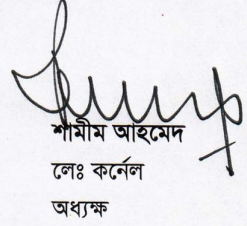 শামীম আহমেদ
লেঃ কর্নেল
অধ্যক্ষ